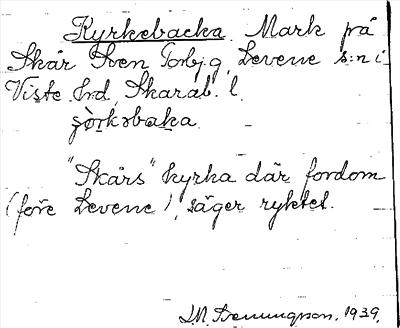 Kyrkebacka. Mark på
Skår Sven Torbj.g, Levene s:n i
Viste hrd, Skarab. l.
"Skårs" kyrka där fordom
(före Levene), säger ryktet.
1939.